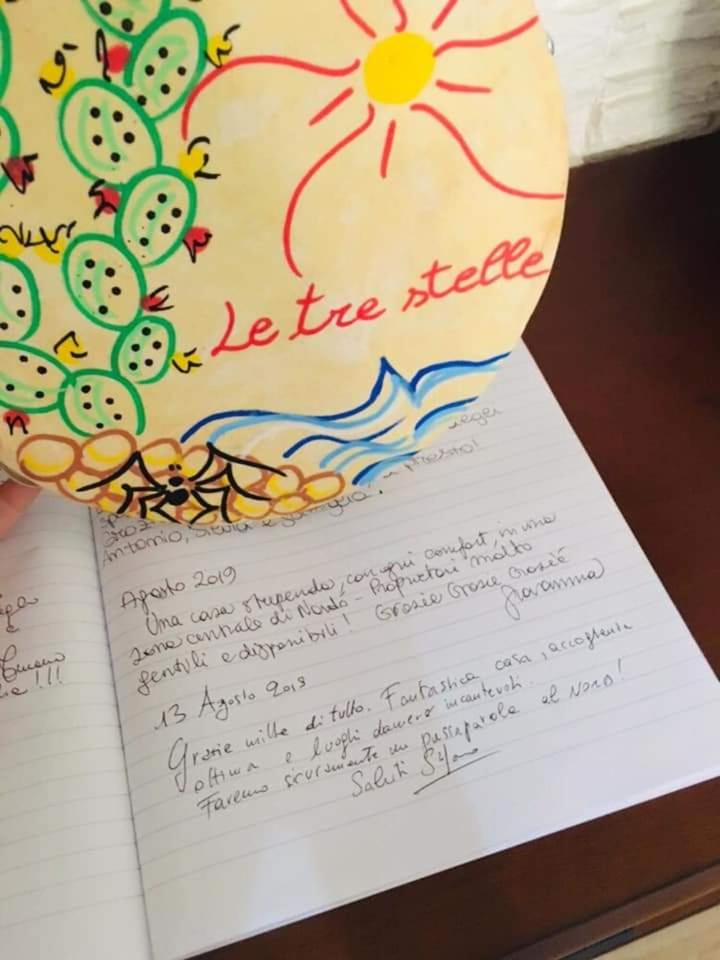 Le tre stelle
presto!
Antonio,
Agosto 2019
Una casa stupenda, con ogni comfort, in una
zona centrale di Nardò - Proprietari molto
gentili e disponibili! Grazie Grazie Grazie
Giovanna
13 Agosto 2019
Grazie mille di tutto. Fantastica casa, accogliente
ottima e luoghi davvero incantevoli.
Faremo sicuramente un passaparola al NORD!
Saluti
!!!